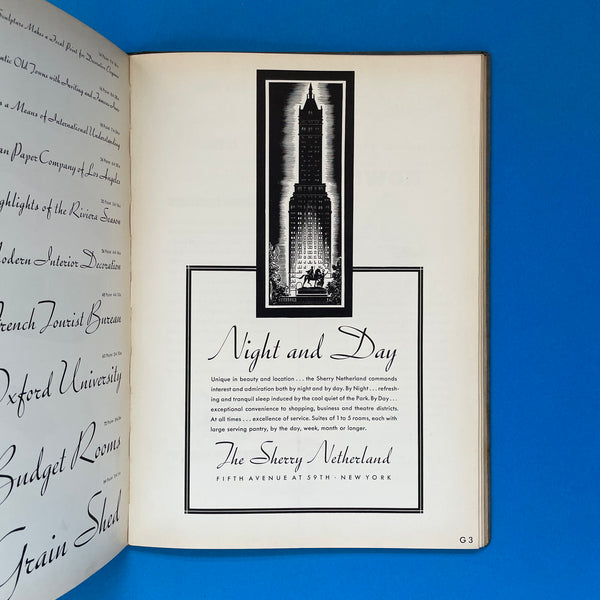 Sculpture Makes a Focal Point for Decorative
antic Old Towns with Inviting and Famous Inns
s a Means of International Understanding
an Paper Company of Los Angeles
ghlights of the Riviera Season
Modern Interior Decoration
French Tourist Bureau
Oxford University
Budget Rooms
Grain Shed
Night and Day
Unique in beauty and location . . . the Sherry Netherland commands
interest and admiration both by night and by day. By Night . . . refresh-
ing and tranquil sleep induced by the cool quiet of the Park. By Day . . .
exceptional convenience to shopping, business and theatre districts.
At all times . . . excellence of service. Suites of 1 to 5 rooms, each with
large serving pantry, by the day, week, month or longer.
The Sherry Netherland
FIFTH AVENUE AT 59TH · NEW YORK
G 3